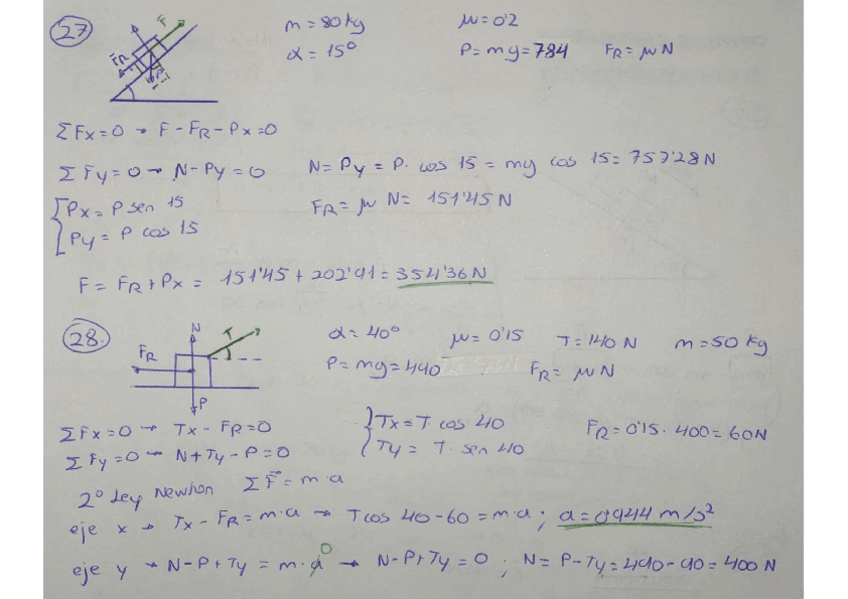 27 F FR P m = 80 kg μ = 0'2
α = 15° P = mg = 784 FR = μ N
ΣFx = 0 → F - FR - Px = 0
ΣFy = 0 → N - Py = 0 N = Py = P · cos 15 = mg cos 15 = 757'28 N
Px = P sen 15 FR = μ N = 151'45 N
Py = P cos 15
F = FR + Px = 151'45 + 202'91 = 354'36 N
28. N T FR P α = 40° μ = 0'15 T = 140 N m = 50 kg
P = mg = 490 FR = μ N
ΣFx = 0 → Tx - FR = 0 Tx = T · cos 40 FR = 0'15 · 400 = 60 N
ΣFy = 0 → N + Ty - P = 0 Ty = T · sen 40
2° Ley Newton ΣF = m · a
eje x → Tx - FR = m · a → T cos 40 - 60 = m · a ; a = 0'944 m/s²
eje y → N - P + Ty = m · a 0 → N - P + Ty = 0 ; N = P - Ty = 490 - 90 = 400 N